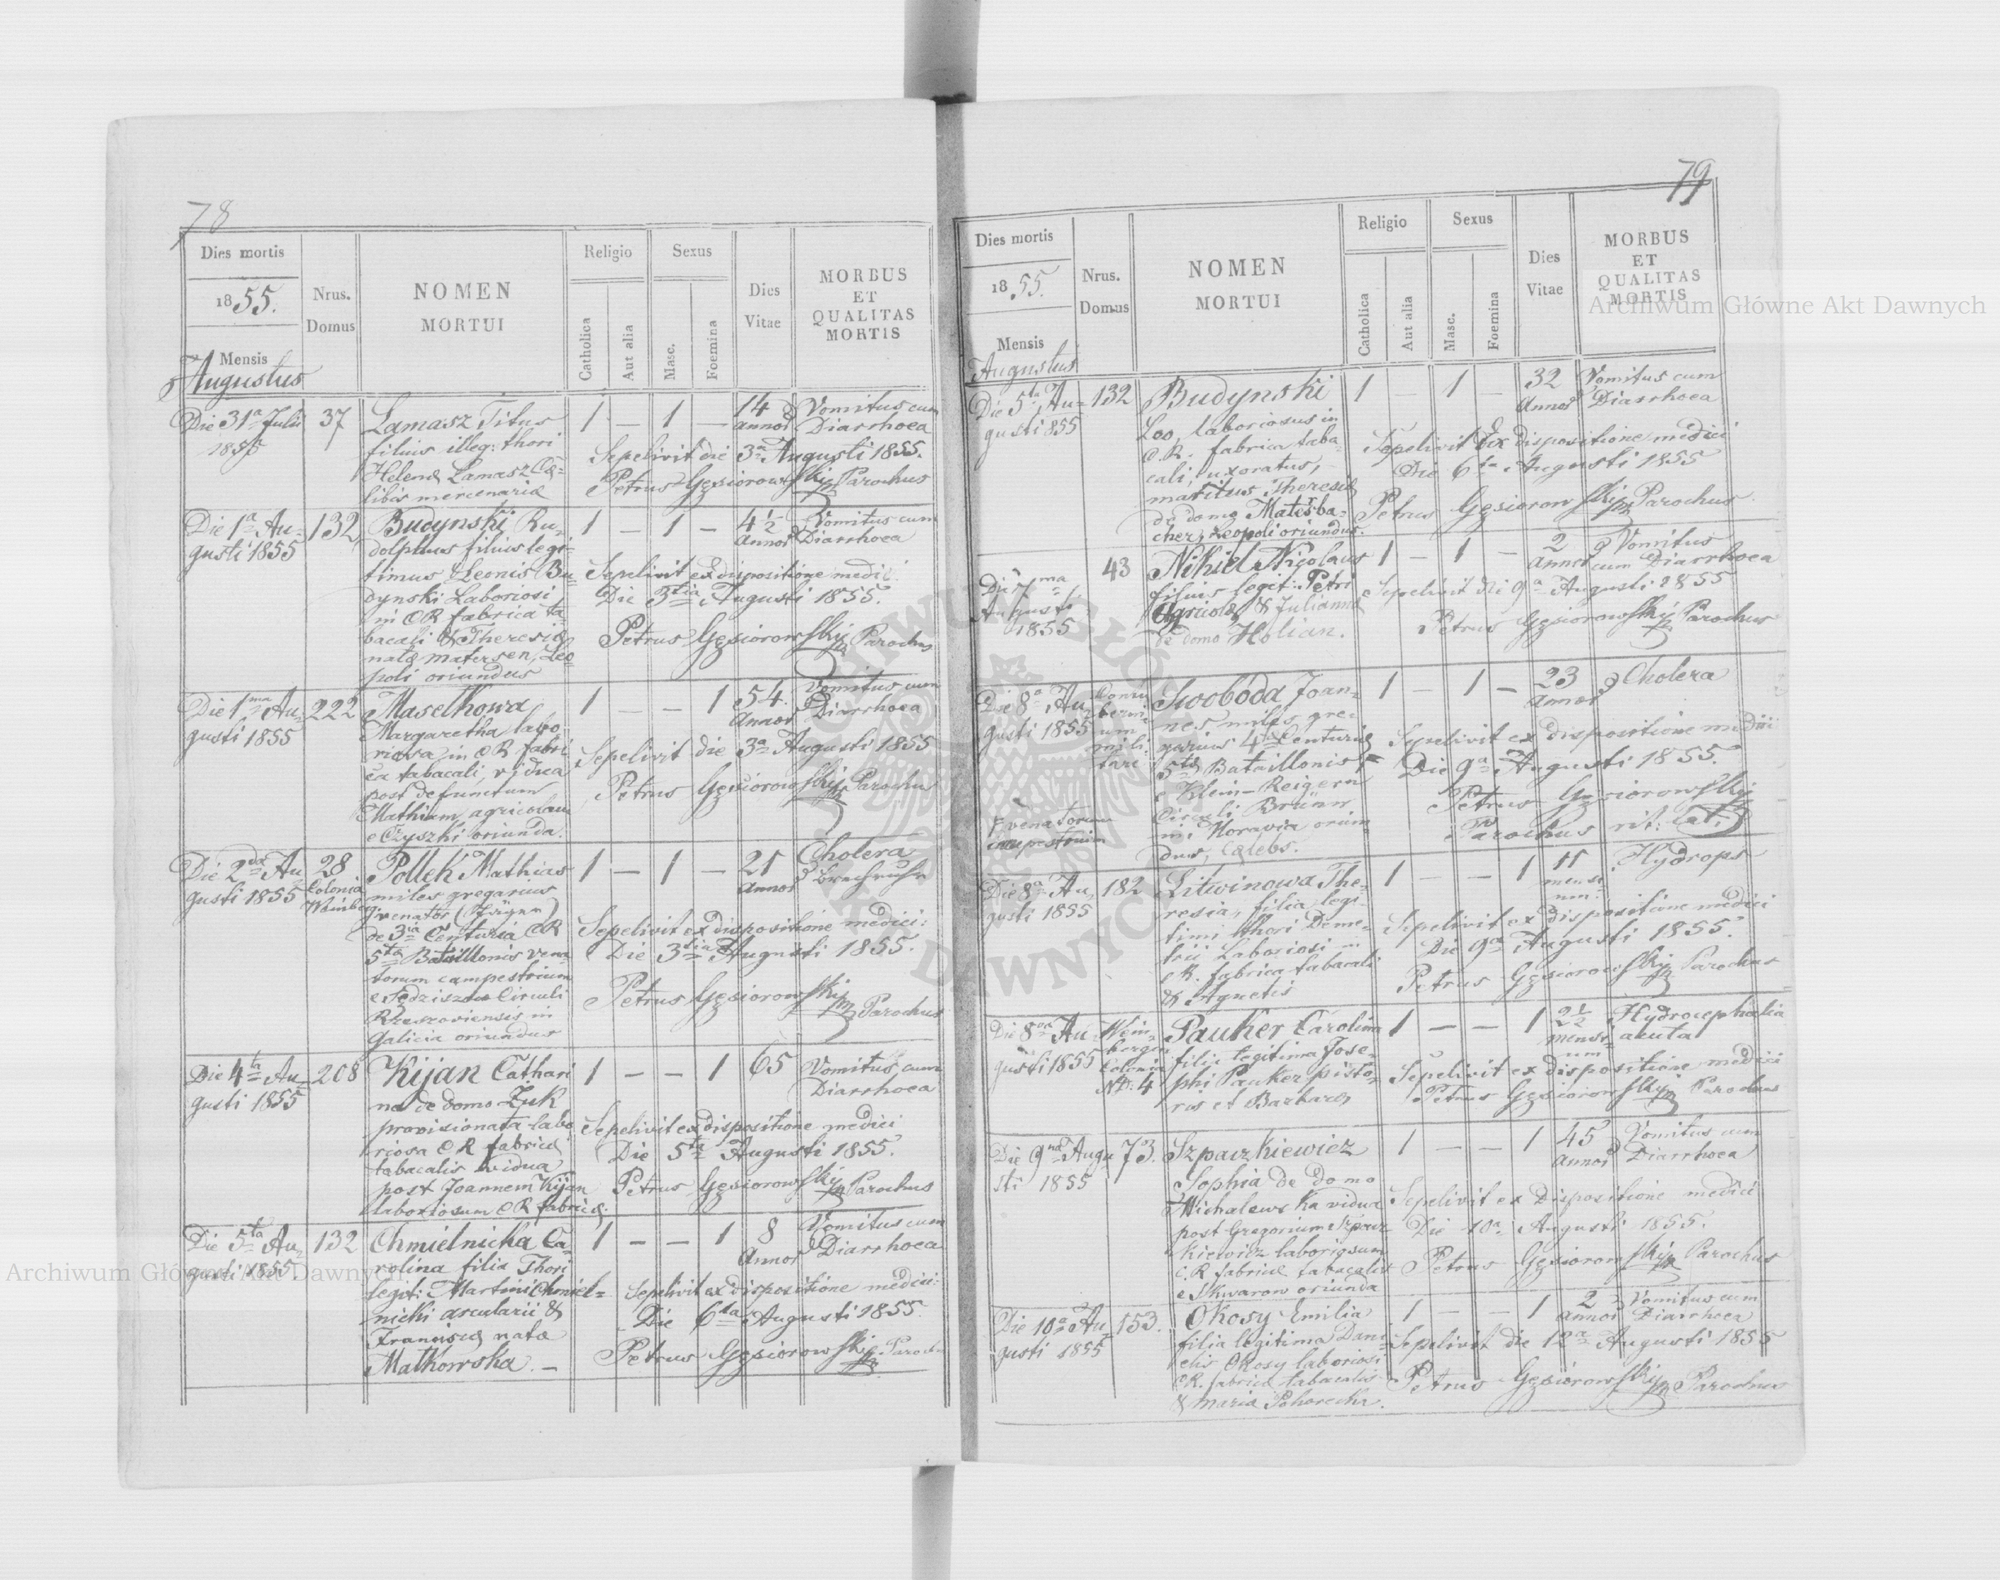 78
Dies mortis
1855.
Mensis
Augustus
Nrus.
Domus
NOMEN
MORTUI
Religio
Catholica
Aut alia
Sexus
Masc.
Foemina
Dies
Vitae
MORBUS
ET
QUALITAS
MORTIS
Die 31a Julii
1855
37
Lamasz Titus
filius illeg: thori
Helenæ Lamasz Cœ-
libis mercenariæ
1 — 1 —
14
Annor
Vomitus cum
Diarrhoea
Sepelivit die 3a Augusti 1855.
Petrus Gęsiorowski Parochus
Die 1a Au-
gusti 1855
132
Budynski Ru-
dolphus filius legi-
timus Leonis Bu-
dynski Laboriosi
in CR fabrica ta-
bacali & Theresiæ
natæ Matersen, Leo
poli oriundus
1 — 1 —
4 1/2
Annor
Vomitus cum
Diarrhoea
Sepelivit ex dispositione medici
Die 3tia Augusti 1855.
Petrus Gęsiorowski Parochus
Die 1ma Au-
gusti 1855
222
Maselkowa
Margaretha labo
riosa in CR fabri
ca tabacali, vidua
post defunctum
Mathiam agricolam
e Czyszki oriunda.
1 — — 1
54.
Annor
Vomitus cum
Diarrhoea
Sepelivit die 3a Augusti 1855
Petrus Gęsiorowski Parochus
Die 2da Au-
gusti 1855
28
Colonia
Weinberg
Pollek Mathias
miles gregarius
venator (Jäger)
de 3ia Centuria CR
5ta Bataillonis vena
torum campestrium
e Sedziszow Circuli
Rzeszoviensis in
Galicia oriundus
1 — 1 —
21
Annor
Cholera
Brechruhr
Sepelivit ex dispositione medici:
Die 3tia Augusti 1855.
Petrus Gęsiorowski Parochus
Die 4ta Au-
gusti 1855
208
Kijan Cathari
na de domo Żuk
provisionata labo
riosa CR fabricæ
tabacalis vidua
post Joannem Kijan
laboriosum CR fabricæ.
1 — — 1
65
Vomitus cum
Diarrhoea
Sepelivit ex dispositione medici
Die 5ta Augusti 1855.
Petrus Gęsiorowski Parochus
Die 5ta Au-
gusti 1855
132
Chmielnicka Ca-
rolina filia Thori
legit: Martini Chmiel-
nicki arcularii &
Franciscæ nata
Malkowska. —
1 — — 1
8
Annor
Vomitus cum
Diarrhoea
Sepelivit ex dispositione medici:
Die 6ta Augusti 1855.
Petrus Gęsiorowski Parochus
79
Dies mortis
1855.
Mensis
Augustus
Nrus.
Domus
NOMEN
MORTUI
Religio
Catholica
Aut alia
Sexus
Masc.
Foemina
Dies
Vitae
MORBUS
ET
QUALITAS
MORTIS
Die 5ta Au-
gusti 855
132
Budynski
Leo, laboriosus in
C.R. fabrica taba
cali, uxoratus,
maritus Theresiæ
de domo
Leopoli oriundus.
1 — 1 —
32
Annor
Vomitus cum
Diarrhoea
Sepelivit Ex dispositione medici
Die 6ta Augusti 1855
Petrus Gęsiorowski Parochus.
Die 7ma
Augusti
1855
43
Nikiel Nicolaus
filius legit: Petri
Agricolæ & Julianna
de domo Holian.
1 — 1 —
2
Annor
Vomitus
cum Diarrhoea
Sepelivit die 9a Augusti 1855
Petrus Gęsiorowski Parochus
Die 8a Au-
gusti 1855
mili-
tari
Swoboda Joan-
nes miles gre-
garius 4tæ Centuriæ
5tæ Bataillonis
e Klein-Reigern
Circuli Brünn
in Moravia oriun-
dus, Cælebs.
venatorum
campestrium
1 — 1 —
23
Annor
Cholera
Sepelivit ex dispositione medici
Die 9a Augusti 1855.
Petrus Gęsiorowski
Parochus rit: lat:
Die 8a Au-
gusti 1855
182
Litwinowa The-
resia, filia legi-
timi thori Deme-
trii Laboriosi
C.R. fabrica tabacali
& Agnetis
1 — — 1
11
mensi
um.
Hydrops
Sepelivit ex dispositione medici
Die 9a Augusti 1855.
Petrus Gęsiorowski Parochus
Die 8va Au-
gusti 1855
Wein-
bergen
Colonia
Nr. 4
Pauker Carolina
filia legitima Jose-
phi Pauker pisto-
ris et Barbaræ
1 — — 1
2 1/2
mensi
um
Hydrocephalia
acuta
Sepelivit ex dispositione medici
Petrus Gęsiorowski Parochus
Die 9na Augu
sti 1855
73.
Szpaczkiewicz
Sophia de domo
Michalewska vidua
post Gregorium Szpacz
kiewicz laboriosum
C.R fabricæ tabacalis
e Skwarow oriunda
1 — — 1
45
Annor
Vomitus cum
Diarrhoea
Sepelivit ex Dispositione medici
Die 10a Augusti 1855.
Petrus Gęsiorowski Parochus
Die 10a Au-
gusti 1855
153.
Okosy Emilia
filia legitima Dani
elis Okosy laboriosi
CR. fabricæ tabacalis
& Maria
1 — — 1
2
Annor
Vomitus cum
Diarrhoea
Sepelivit die 12a Augusti 1855
Petrus Gęsiorowski Parochus
Archiwum Główne Akt Dawnych
Archiwum Główne Akt Dawnych